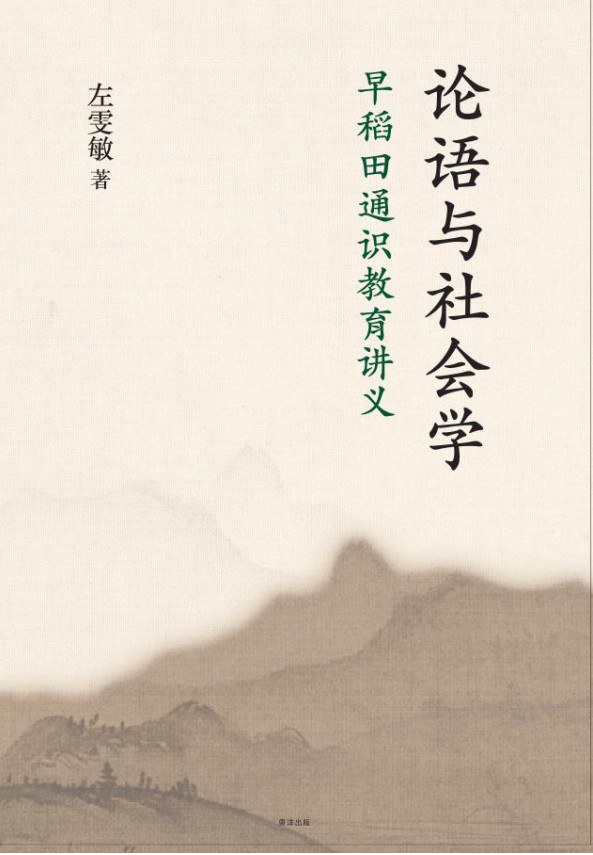 论语与社会学
早稻田通识教育讲义
左雯敏 著
東洋出版